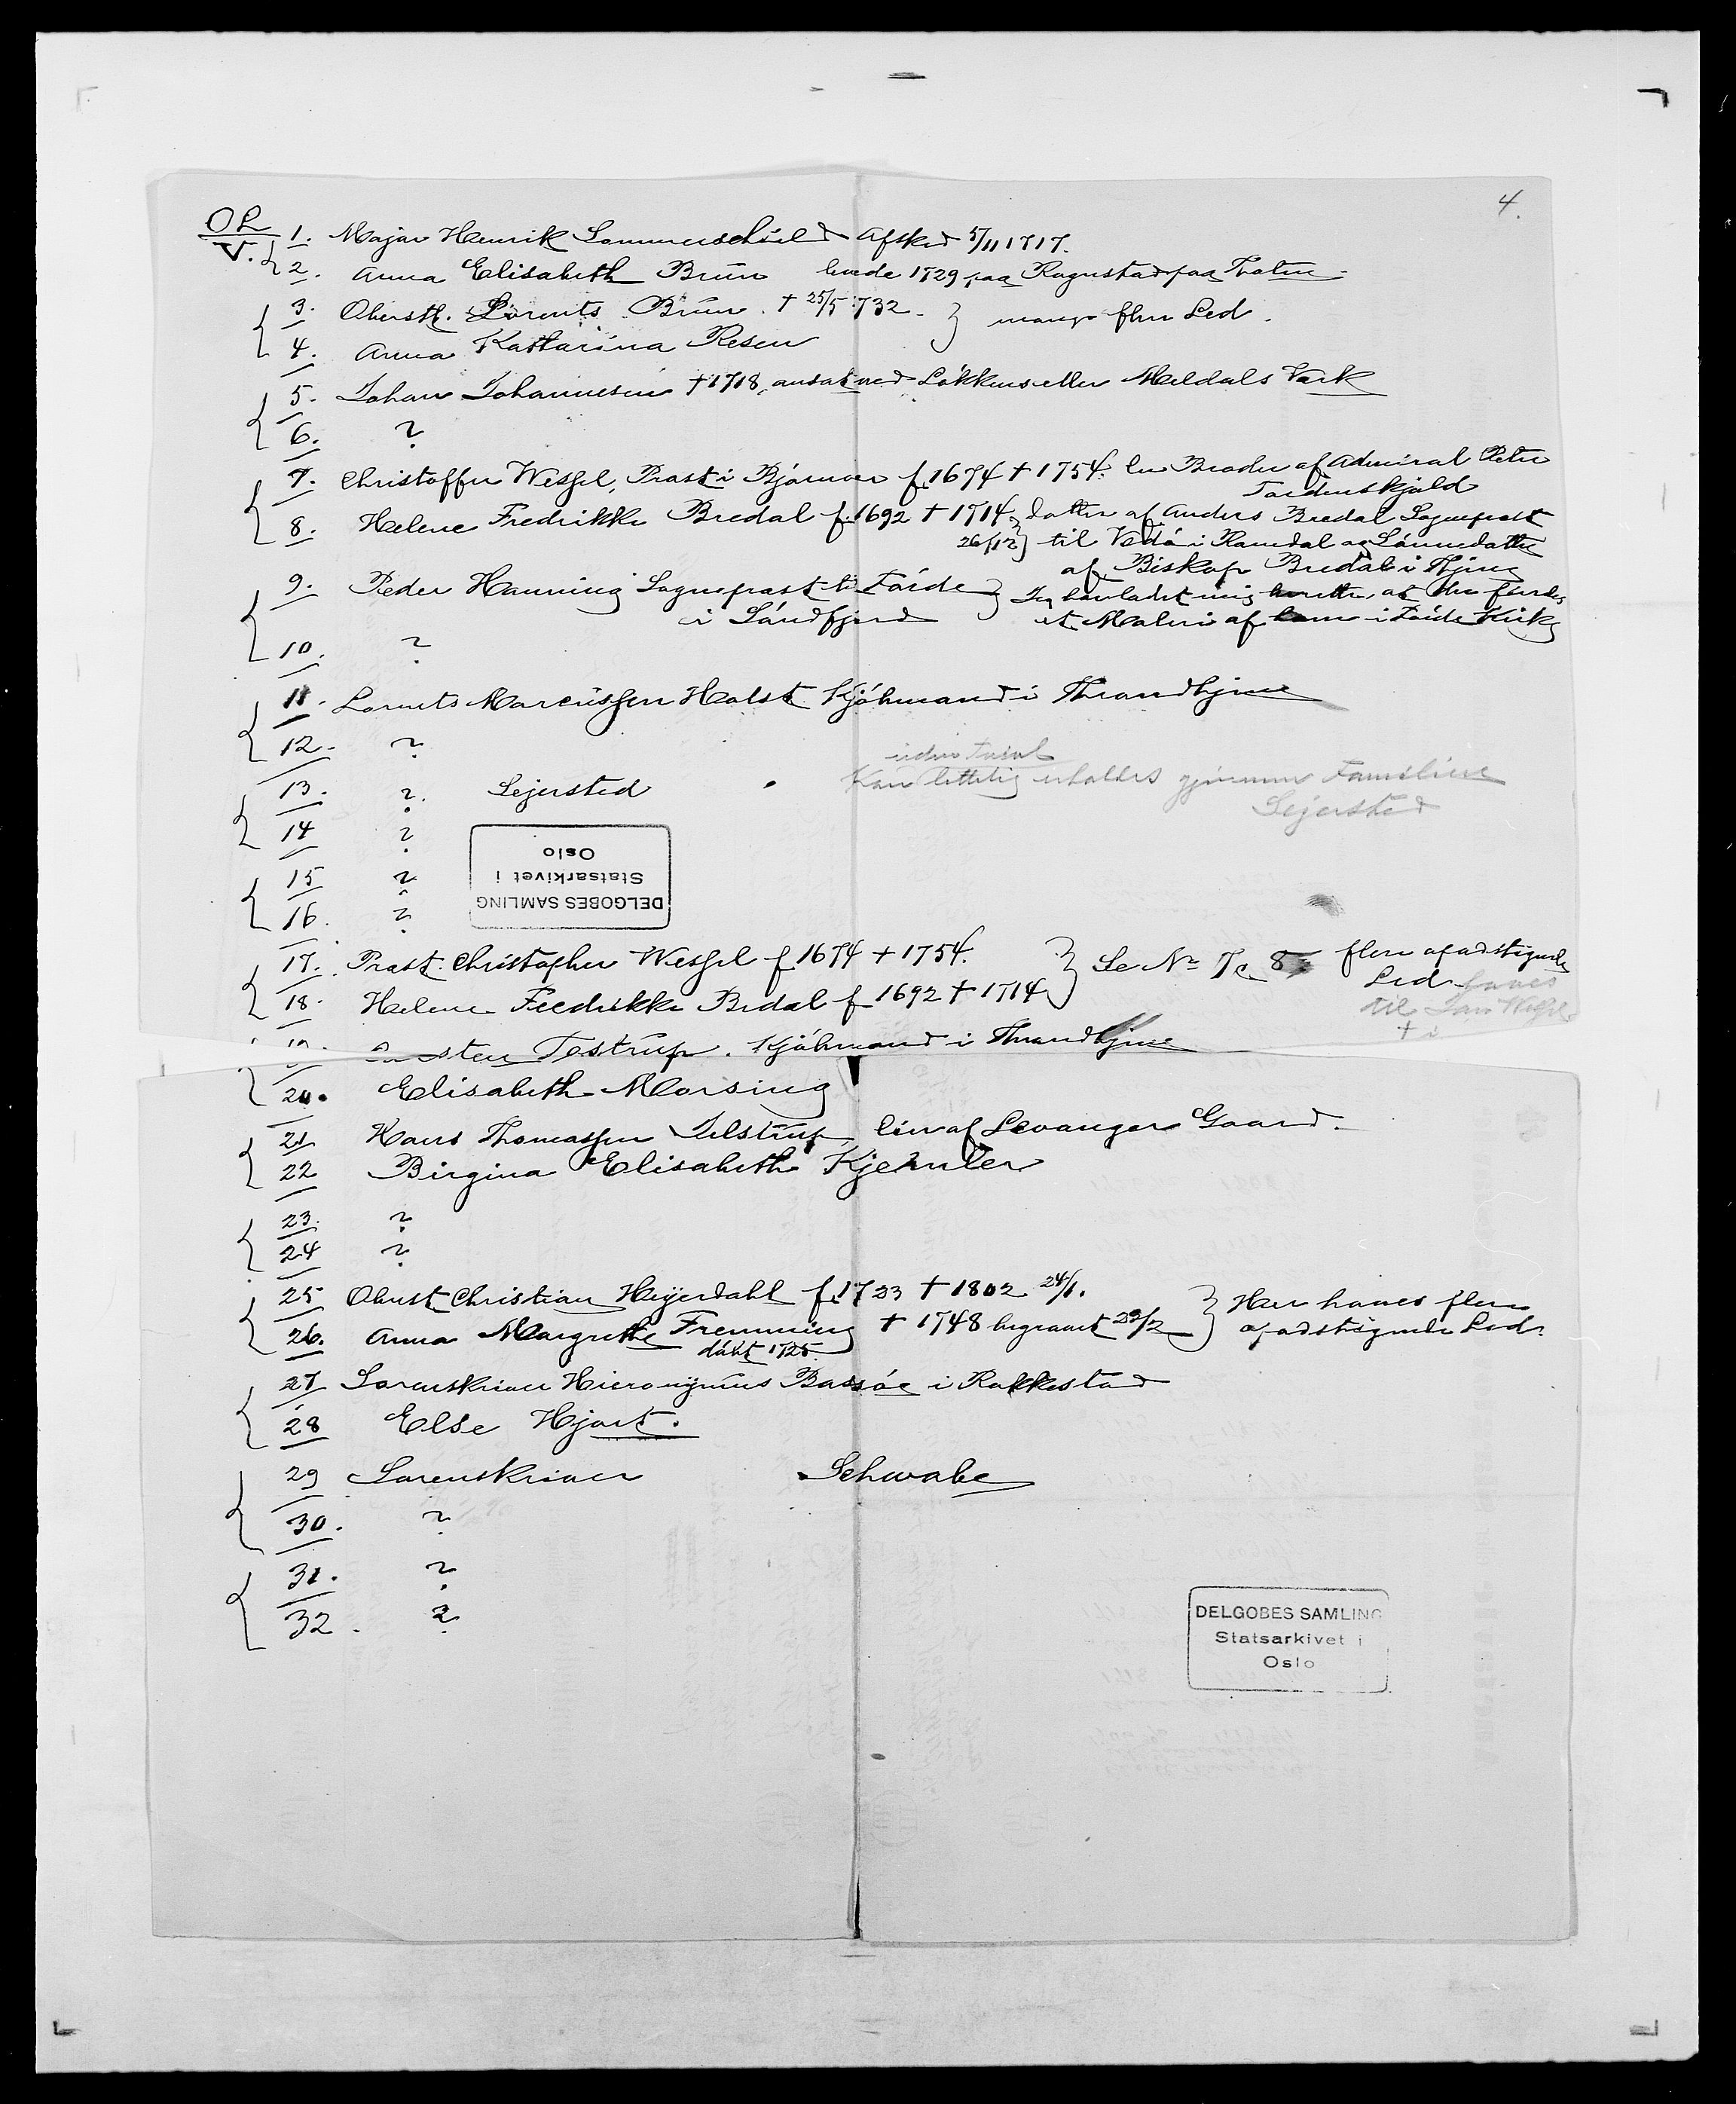 4.
OL
V.
1. Major Henrik Sommerschield Afsked 5/11 1717.
2. Anna Elisabeth Brün levde 1729 paa Rognstad paa Thoten
3. Oberstl. Lorents Brün. † 25/5 1732. } mange flere Led.
4. Anna Kattarina Resen
5. Johan Johannesen † 1718, ansat ved Løkkens eller Meldals Værk
6. ?
7. Christoffer Wessel, Præst i Bjørnør f. 1674 † 1754. en Broder af Admiral Peter
Tordenskjold
8. Helene Fredrikke Bredal f. 1692 † 1714 } Datter af Anders Bredal Sognepræst
26/12 } til Vedø i Ramsdal og Sønnedatter
af Biskop Bredal i Thjem
9. Peder Hanning Sognepræst til Førde } Jeg har ladet mig berette, at der findes
i Søndfjord et Maleri af ham i Førde Kirke
10. ?
11. Lorents Marcussen Holst Kjøbmand i Throndhjem
12. ?
uden Tvivl
13. ? Sejersted Kan lettelig erholdes gjennem Familien
Sejersted
14 ?
15 ?
16. ?
DELGOBES SAMLING
Statsarkivet i
Oslo
17. Præst. Christopher Wessel f. 1674 † 1754. } Se No 7 & 8 flere opadstigende
18. Helene Fredrikke Bredal f 1692 † 1714 Led haves
til Jan Wessel
† i
19. Testrup. Kjøbmand i Throndhjem
20. Elisabeth Morsing
21 Hans Thomassen Jelstrup, Eier af Levanger Gaard.
22 Birgina Elisabeth Kjemler
23. ?
24 ?
25 Oberst Christian Heyerdahl f. 1723 † 1802 24/1. } Her haves flere
26. Anna Margrethe Fremming † 1748 begravet 29/2 opadstigende Led.
døbt 1725.
27 Sorenskriver Hieronymus Bassøe i Rakkestad
28 Else Hjort.
29 Sorenskriver Schwabe
30. ?
31. ?
32. ?
DELGOBES SAMLING
Statsarkivet i
Oslo